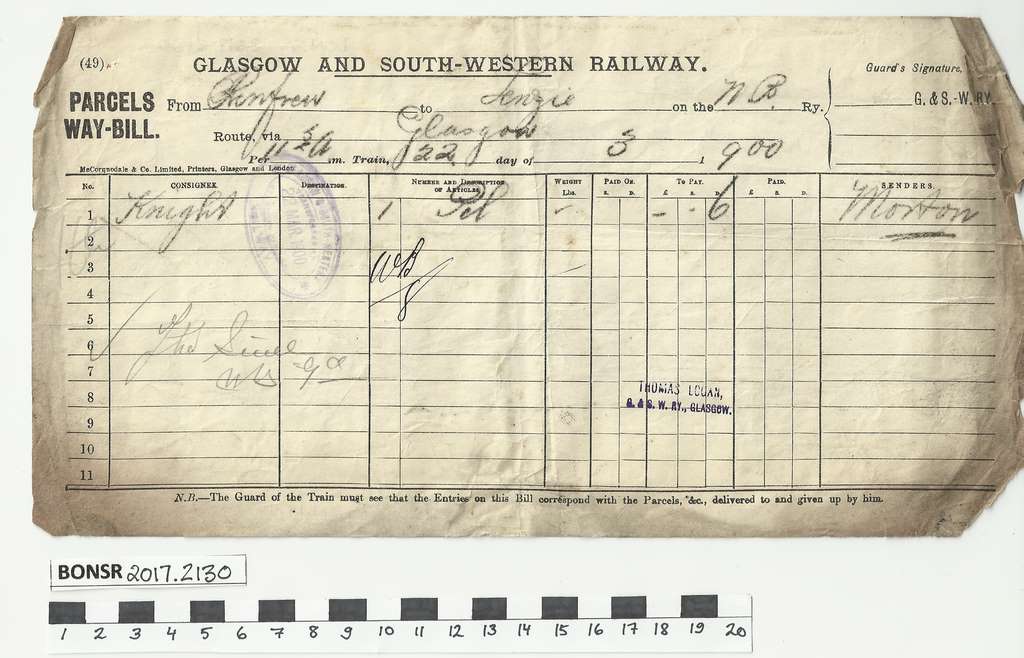 (49)
GLASGOW AND SOUTH-WESTERN RAILWAY.
Guard's Signature.
PARCELS WAY-BILL.
From Renfrew to Lenzie on the N B. Ry.
G. & S.-W. RY.
Route, via Glasgow
Per 11 A m. Train, 22 day of 3 1900
McCorquodale & Co. Limited, Printers, Glasgow and London
No. CONSIGNEE. DESTINATION. NUMBER AND DESCRIPTION OF ARTICLES. WEIGHT Lbs. PAID ON. TO PAY. PAID. SENDERS.
S. D. £ S. D. £ S. D.
1 Knight 1 Pcl - - - 6 Morton
2
3
4
5
6
7
8
THOMAS LOGAN,
G. & S. W. RY., GLASGOW.
9
10
11
N.B.—The Guard of the Train must see that the Entries on this Bill correspond with the Parcels, &c., delivered to and given up by him.
BONSR 2017.2130
1 2 3 4 5 6 7 8 9 10 11 12 13 14 15 16 17 18 19 20